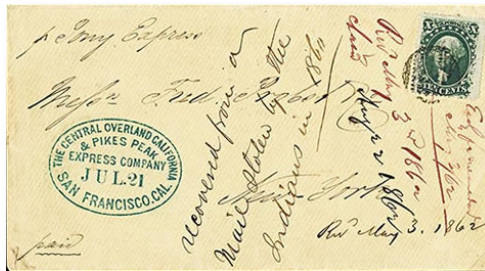 p Pony Express
Messrs Fred
New York
paid
THE CENTRAL OVERLAND CALIFORNIA
& PIKES PEAK
EXPRESS COMPANY
JUL. 21
SAN FRANCISCO.CAL.
recovered from a
Mail stolen by the
Indians in 1860
Recd May 3d 1862
TEN CENTS
Recd May 3. 1862